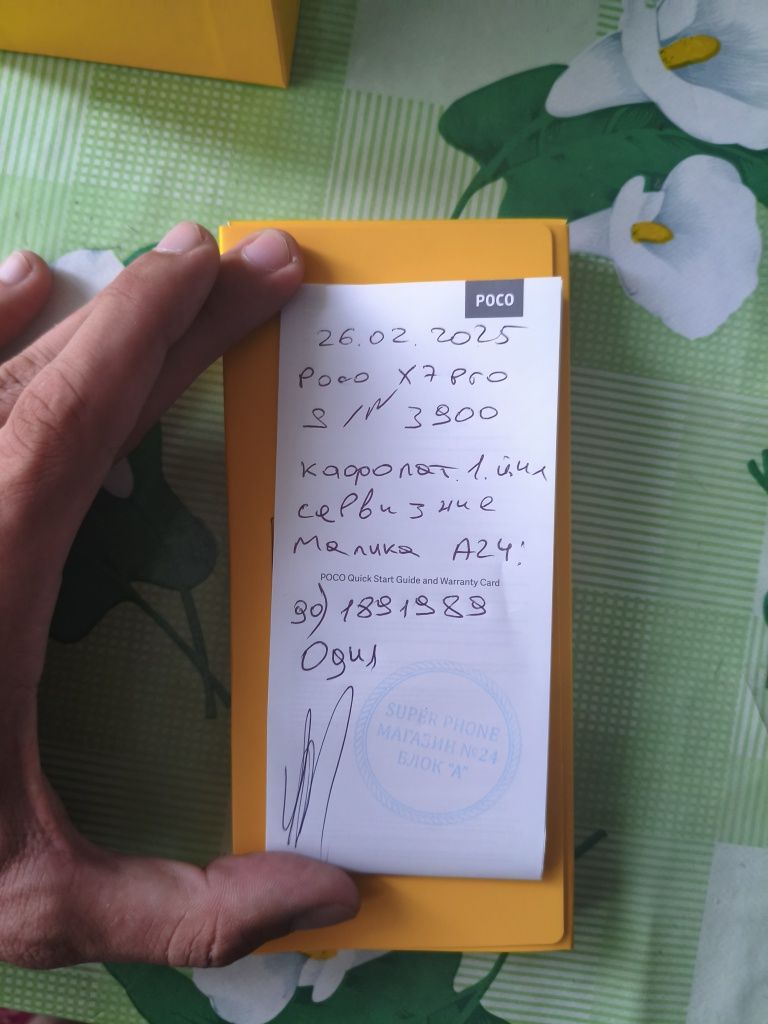 POCO
26.02.2025
Poco X7 Pro
S/N 3900
кафолат.1.йил
сервизние
Малика А24:
POCO Quick Start Guide and Warranty Card
90) 1891989
Одил
SUPER PHONE
МАГАЗИН №24
БЛОК "А"